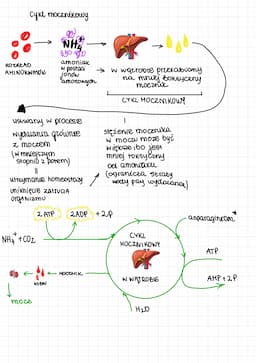 Cykl mocznikowy
ROZKŁAD
AMINOKWASÓW
NH₄⁺
amoniak
w postaci
jonów
amonowych
w WĄTROBIE przekształcany
na mniej toksyczny
mocznik
CYKL MOCZNIKOWY
usuwany w procesie
wydalania głównie
z moczem
(w mniejszym
stopniu z potem)
utrzymanie homeostazy
uniknięcie zatrucia
organizmu
stężenie mocznika
w moczu może być
większe bo jest
mniej toksyczny
od amoniaku
(ogranicza straty
wody przy wydalaniu)
2 ATP
2ADP + 2P
asparaginian
NH₄⁺ + CO₂
CYKL
MOCZNIKOWY
W WĄTROBIE
ATP
AMP + 2P
MOCZNIK
KREW
mocz
H₂O